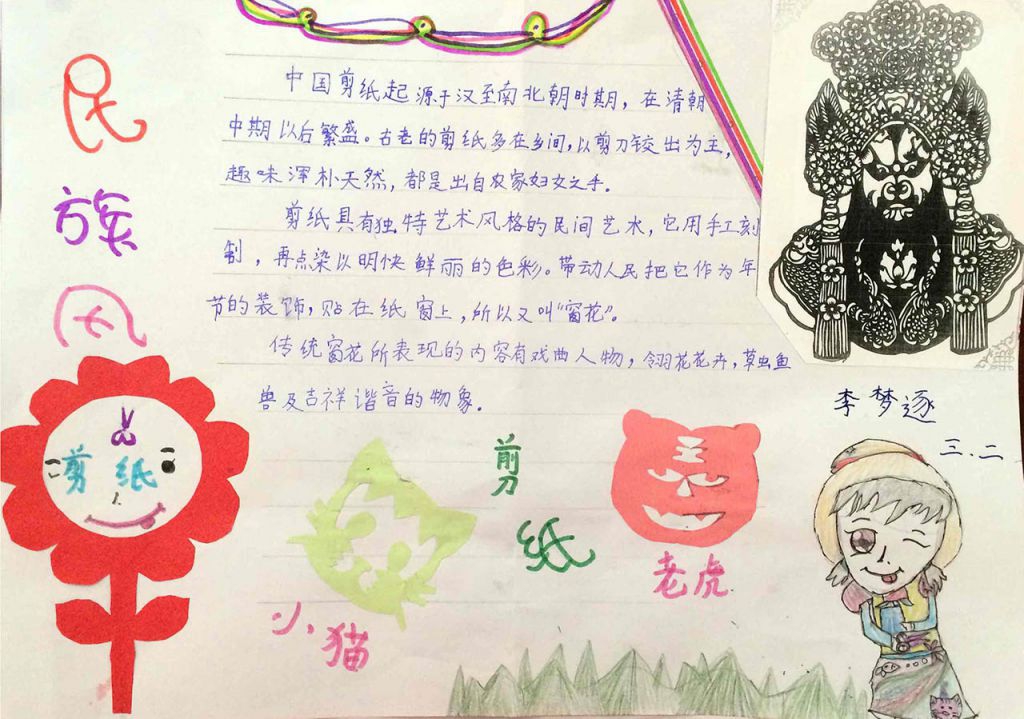 民族风
中国剪纸起源于汉至南北朝时期，在清朝
中期以后繁盛。古老的剪纸多在乡间，以剪刀铰出为主，
趣味浑朴天然，都是出自农家妇女之手。
剪纸具有独特艺术风格的民间艺术，它用手工刻
制，再点染以明快鲜丽的色彩。带动人民把它作为年
节的装饰，贴在纸窗上，所以又叫“窗花”。
传统窗花所表现的内容有戏曲人物，翎羽花卉，草虫鱼
兽及吉祥谐音的物象。
李梦逐
三.二
剪纸
剪纸
小猫
老虎